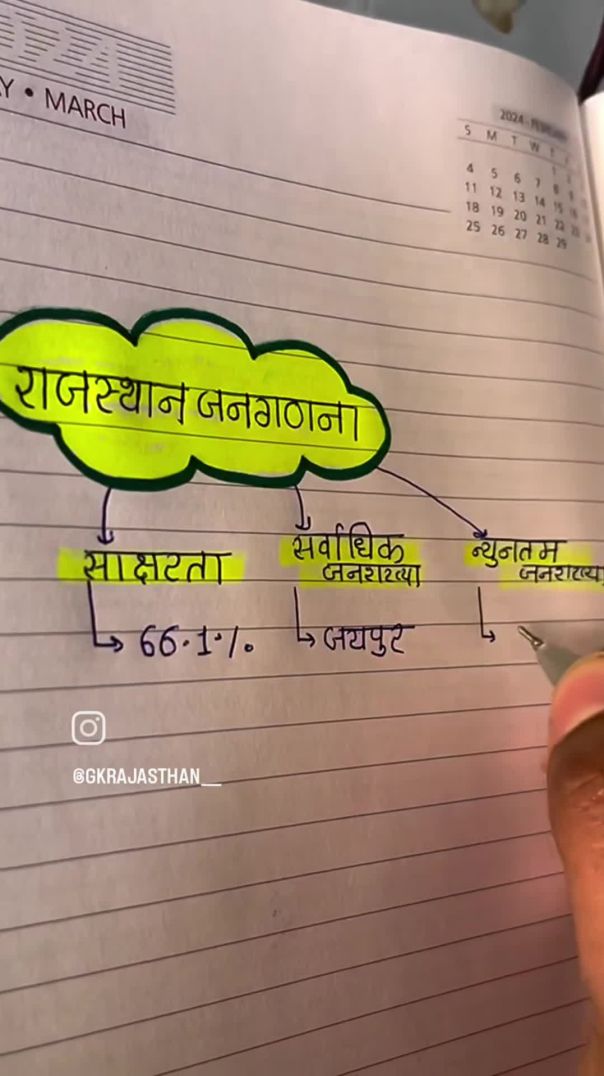 2024
Y • MARCH
2024 - FEBRUARY
S M T W T F
4 5 6 7 8 9
11 12 13 14 15 16
18 19 20 21 22 23
25 26 27 28 29
राजस्थान जनगणना
साक्षरता
सर्वाधिक
जनसंख्या
न्युनतम
जनसंख्या
66.1%.
जयपुर
@GKRAJASTHAN__